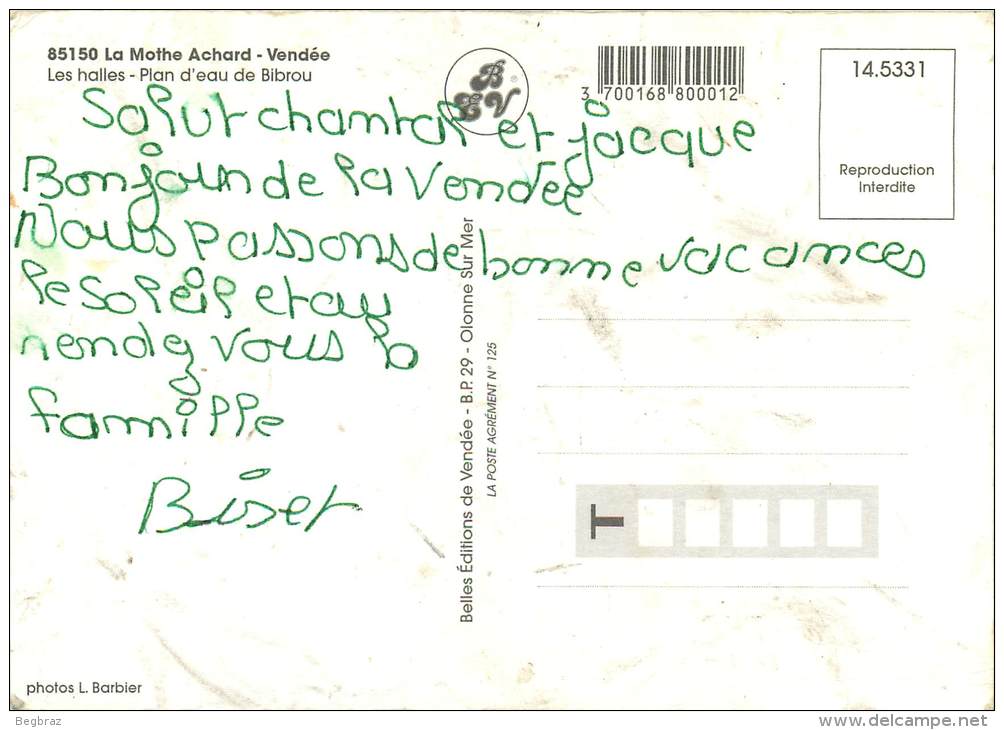 85150 La Mothe Achard - Vendée
Les halles - Plan d'eau de Bibrou
BEV
3 700168 800012
14.5331
Reproduction
Interdite
Salut chantal et jacque
Bonjour de la Vendée
Nous passons de bonne vacances
le soleil et au
rendez vous la
famille
Biset
Belles Éditions de Vendée - B.P. 29 - Olonne Sur Mer
LA POSTE AGRÉMENT N° 125
T
photos L. Barbier
Begbraz
www.delcampe.net